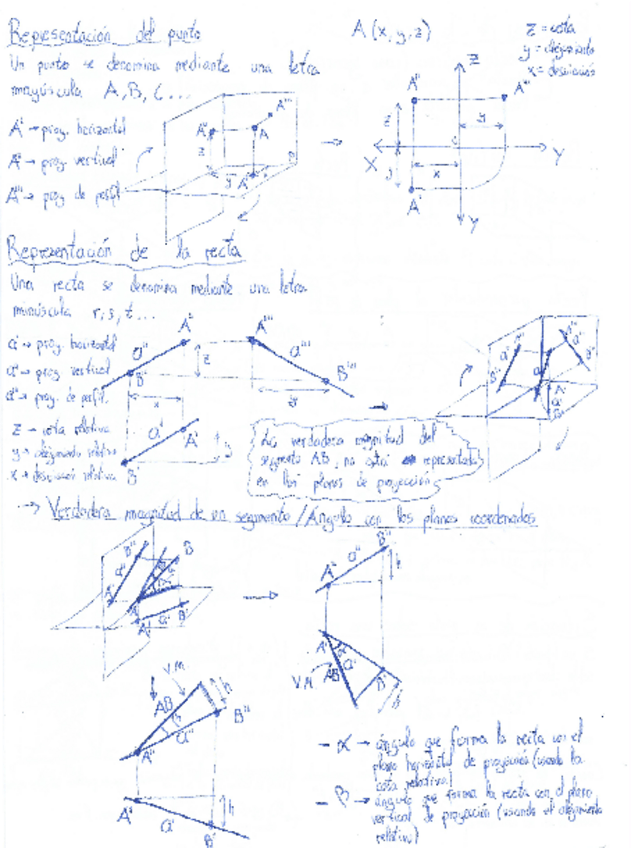 Representación del punto
Un punto se denomina mediante una letra
mayúscula A, B, C ...
A' → proy. horizontal
A'' → proy. vertical
A''' → proy. de perfil
A (x, y, z)
z = cota
y = alejamiento
x = desviación
A''
A'''
A
A'
z
y
→
Z
A''
A'''
z
y
X
Y
x
y
A'
Y
Representación de la recta
Una recta se denomina mediante una letra
minúscula r, s, t ...
a' → proy. horizontal
a'' → proy. vertical
a''' → proy. de perfil
z → cota relativa
y → alejamiento relativo
x → desviación relativa
A''
a''
B''
z
A'''
a'''
B'''
y
x
a'
A'
y
B'
→
La verdadera magnitud del
segmento AB, no está representada
en los planos de proyección
→ Verdadera magnitud de un segmento / Ángulo con los planos coordenados
B''
a''
A''
B
A'
a'
B'
→
B''
a''
A''
h
A'
α
a'
V.M.
AB
B'
h
V.M.
AB
h
β
B''
a''
A''
A'
a'
h
B'
- α → ángulo que forma la recta con el
plano horizontal de proyección (usando la
cota relativa)
- β → ángulo que forma la recta con el plano
vertical de proyección (usando el alejamiento
relativo)